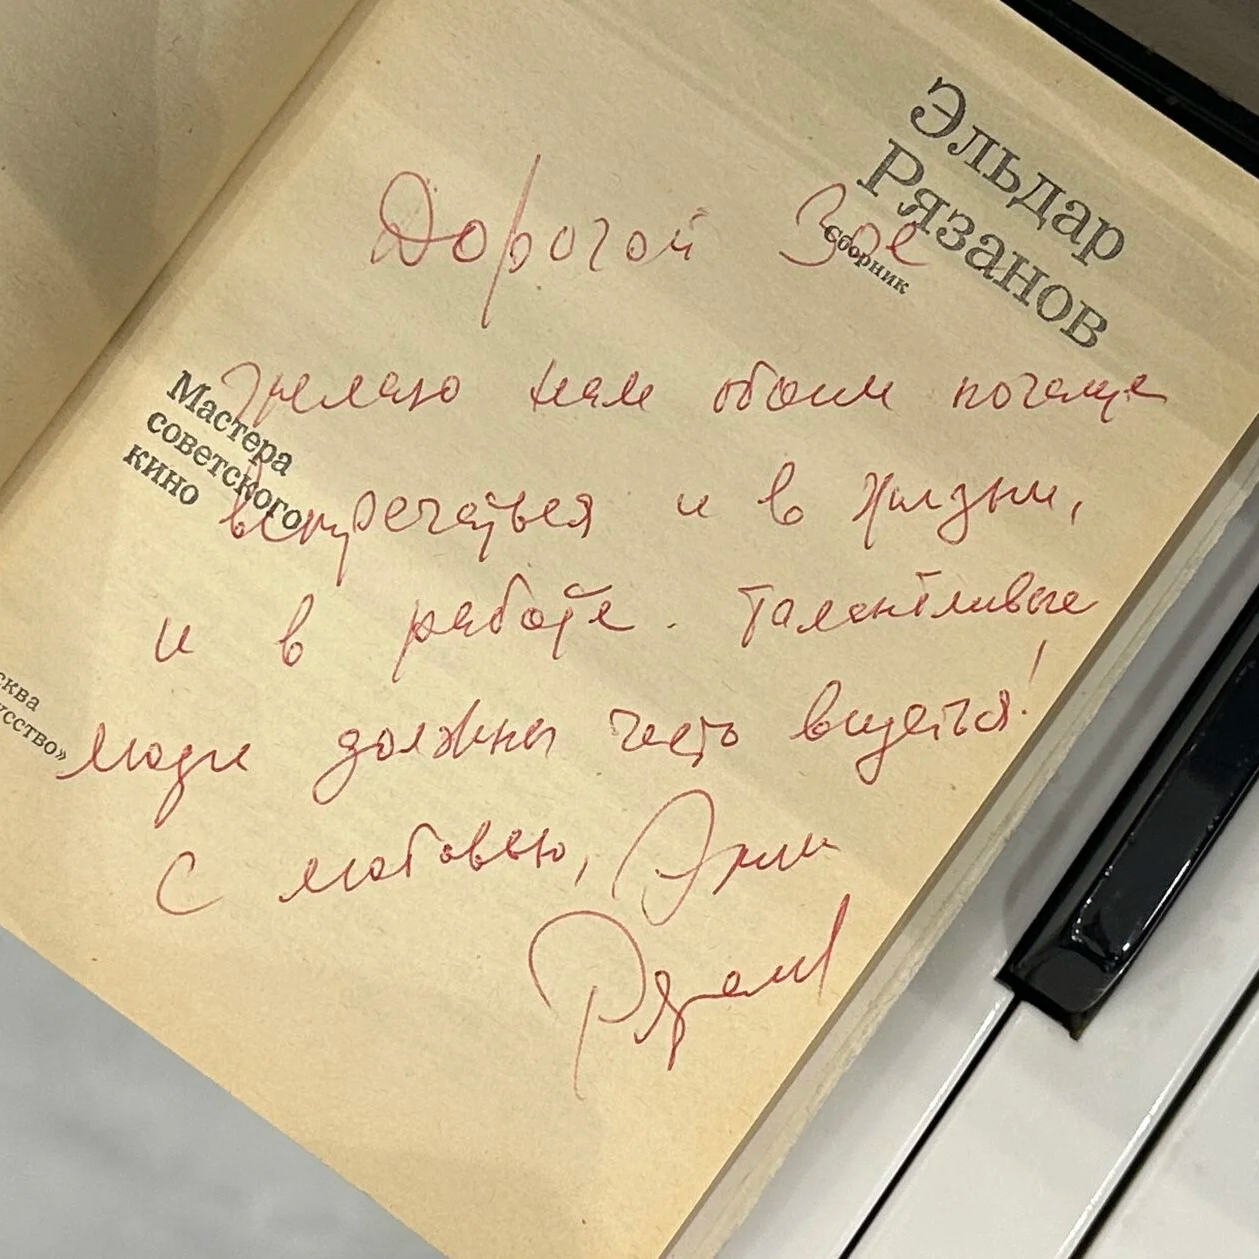 Эльдар
Рязанов
Сборник
Мастера
советского
кино
сква
усство»
Дорогой Зое
желаю нам обоим почаще
встречаться и в жизни,
и в работе. Талантливые
люди должны часто видеться!
С любовью, Эльдар
Рязанов